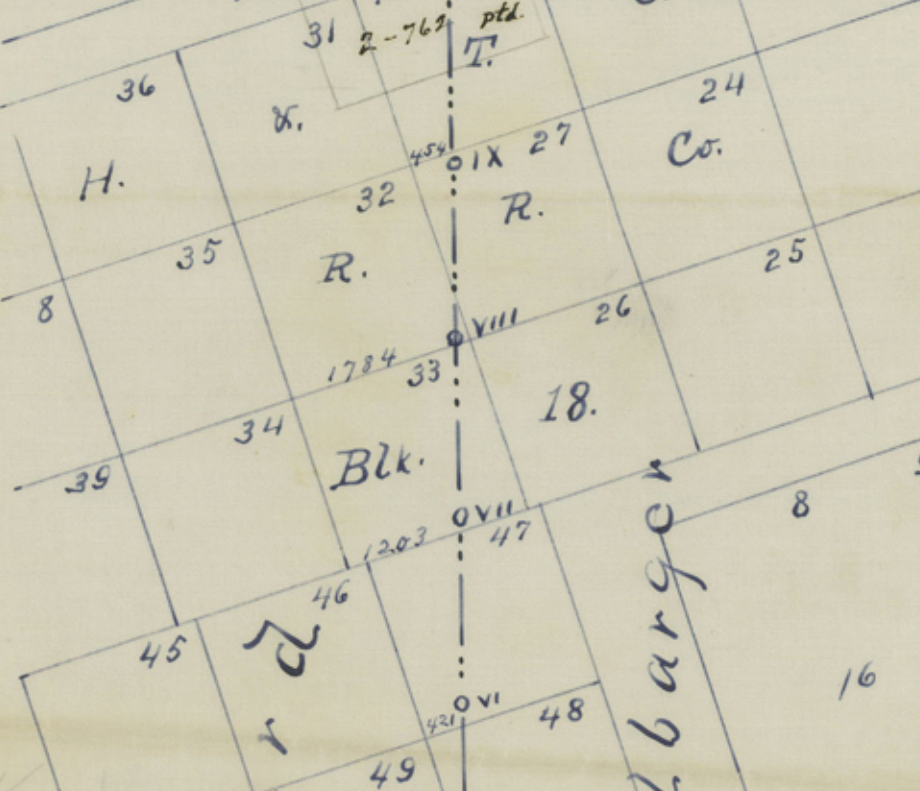 31
2-762 ptd.
T.
36
&.
24
454
IX
27
Co.
H.
32
R.
35
R.
25
8
26
VIII
1784
33
18.
34
Blk.
39
8
VII
47
1203
46
45
rd
barger
16
VI
421
48
49